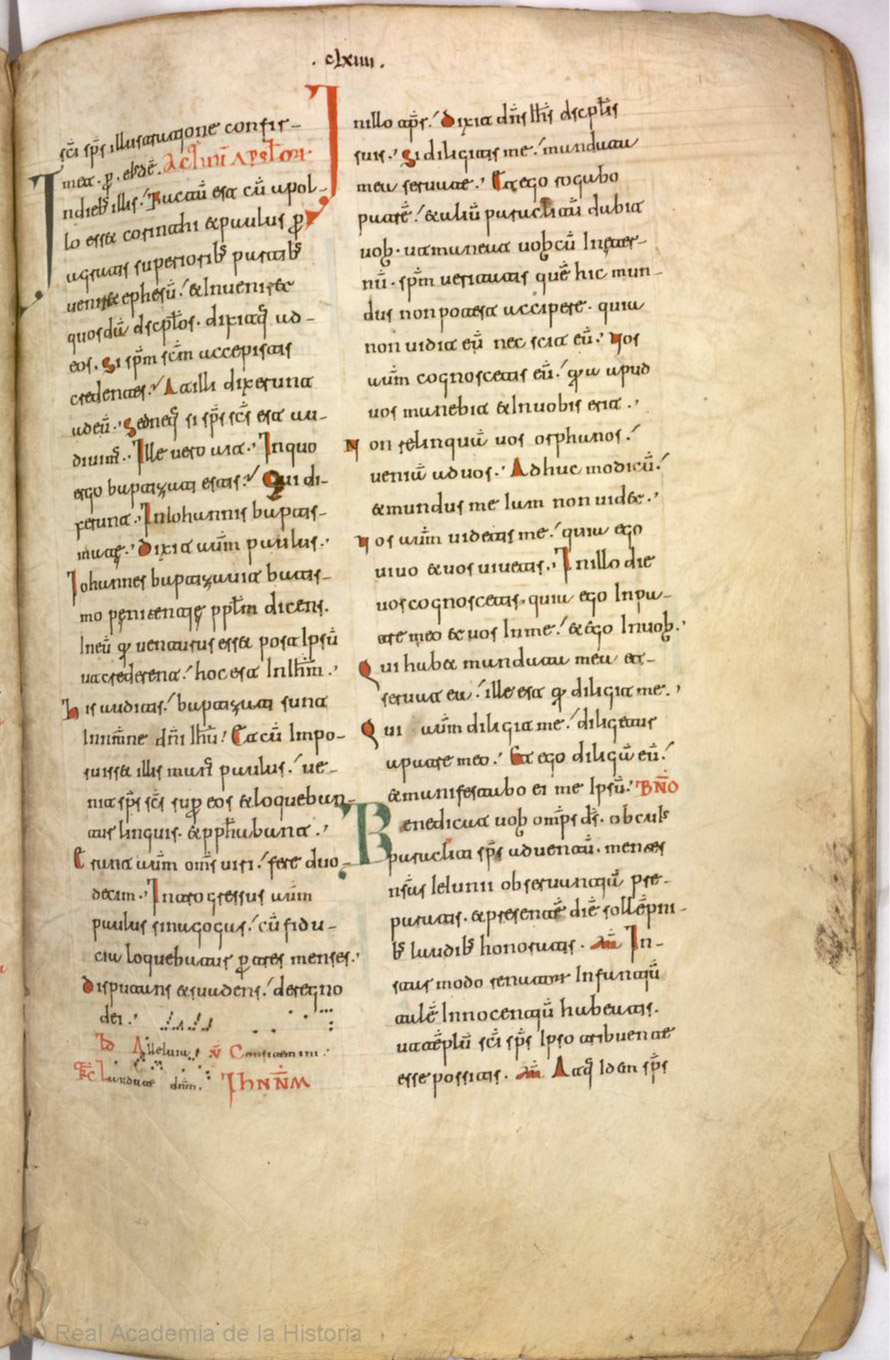 . clxiiii .
sc̄i sp̄s illustratione confir-
met. ꝑ. eiusdē. Actuū Apstlor
Indieb illis. Factū est cū apol-
lo esset corinthi et paulus ꝑ
agratis superiorib partib
venisset ephesū. et Invenisset
quosdā discplos. dixitq ad-
eos. Si sp̄m sc̄m accepistis
credentes. At illi dixerunt
ad eū. Sed neq si sp̄s sc̄s est au-
divim. Ille vero ait. In quo
ergo baptizati estis. Qui di-
xerunt. In Iohannis baptis-
mate. Dixit autm paulus.
Iohannes baptizavit baptis-
mo penitentie pplm dicens.
In eū qui venturus esset post Ipsū
ut crederent. hoc est In Ihm̄.
his auditis. baptizati sunt
In nmne dn̄i Ihū. Et cū Impo-
suisset illis manū paulus. ve-
nit sp̄s sc̄s supꝑ eos et loqueban-
tur linguis. et pphtabant.
Erant autm omns viri. fere duo-
decim. Introgressus autm
paulus sinagoga. cū fidu-
cia loquebatur ꝑ tres menses.
disputans et suadens. de regno
dei.
Alleluia
Laudate dnm. IhNNM
In illo tm̄prs. Dixit dn̄s Ihs̄ dscpl̄is
suis. Si diligitis me. mandata
mea servate. Et ego rogabo
patrē. et aliū paraclitū dabit
vob. ut maneat vobcū In eter-
nū. sp̄m veritatis quē hic mun-
dus non potest accipere. quia
non vidit eū nec scit eū. Vos
autm cognoscetis eū. quia apud
vos manebit et In vobis erit.
Non relinquā vos orphanos.
veniā ad vos. Adhuc modicū.
et mundus me Iam non videt.
Vos autm videtis me. quia ego
vivo et vos vivetis. In illo die
vos cognoscetis. quia ego In pa-
tre meo et vos In me. et ego In vob.
Qui habet mandata mea et-
servat ea. ille est qui diligit me.
Qui autm diligit me. diligetur
a patre meo. Et ego diligā eū.
et manifestabo ei me Ipsū. BÑO
Benedicat vob omps ds̄. ob cuius
paracliti sp̄s adventū. mentes
nsās Ieiunii observantiā pre-
paratis. et presentē diē sollēpni-
b laudib honoratis. am̄ In-
star modo renator Infantiū
talē Innocentiā habeatis.
ut tēplū sc̄i sp̄s Ipso tribuente
esse possitis. am̄ Atq Idem sp̄s
Real Academia de la Historia